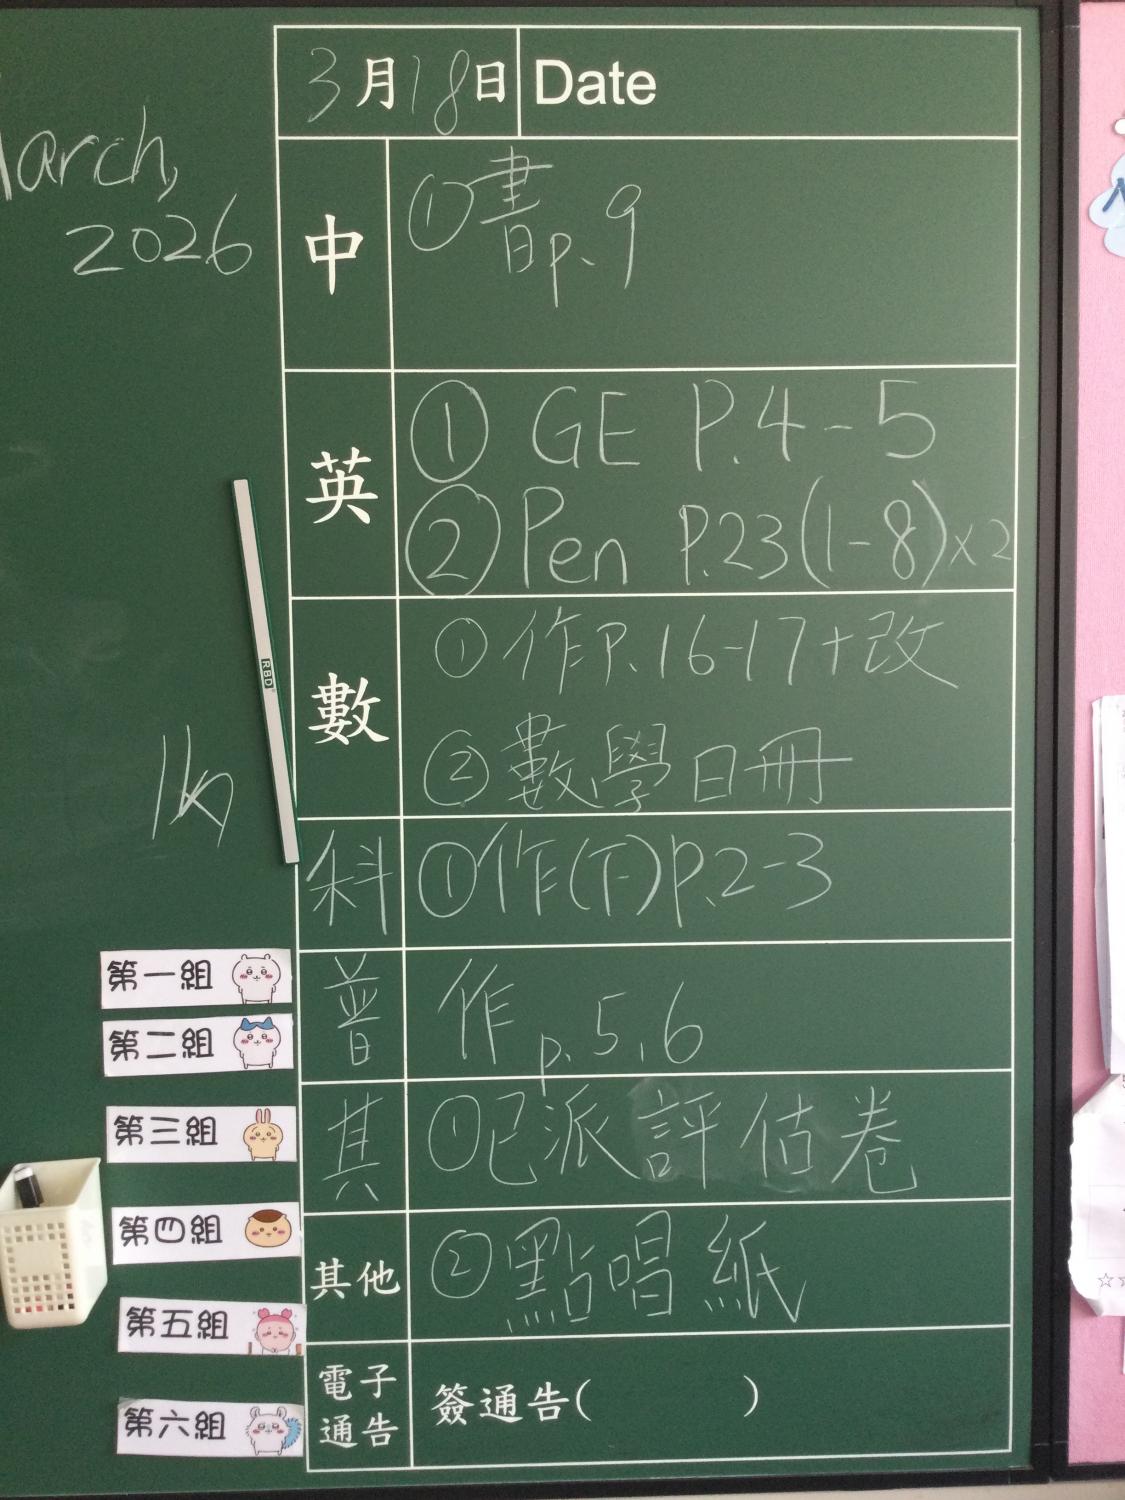 3月18日 Date
March,
2026
中 ①書p.9
英 ① GE P.4-5
② Pen P.23(1-8)x2
數 ①作P.16-17+改
②數學日冊
科 ①作(下)p.2-3
普 作p.5,6
其 ①已派評估卷
其他 ②點唱紙
電子通告 簽通告( )
RBD
第一組
第二組
第三組
第四組
第五組
第六組